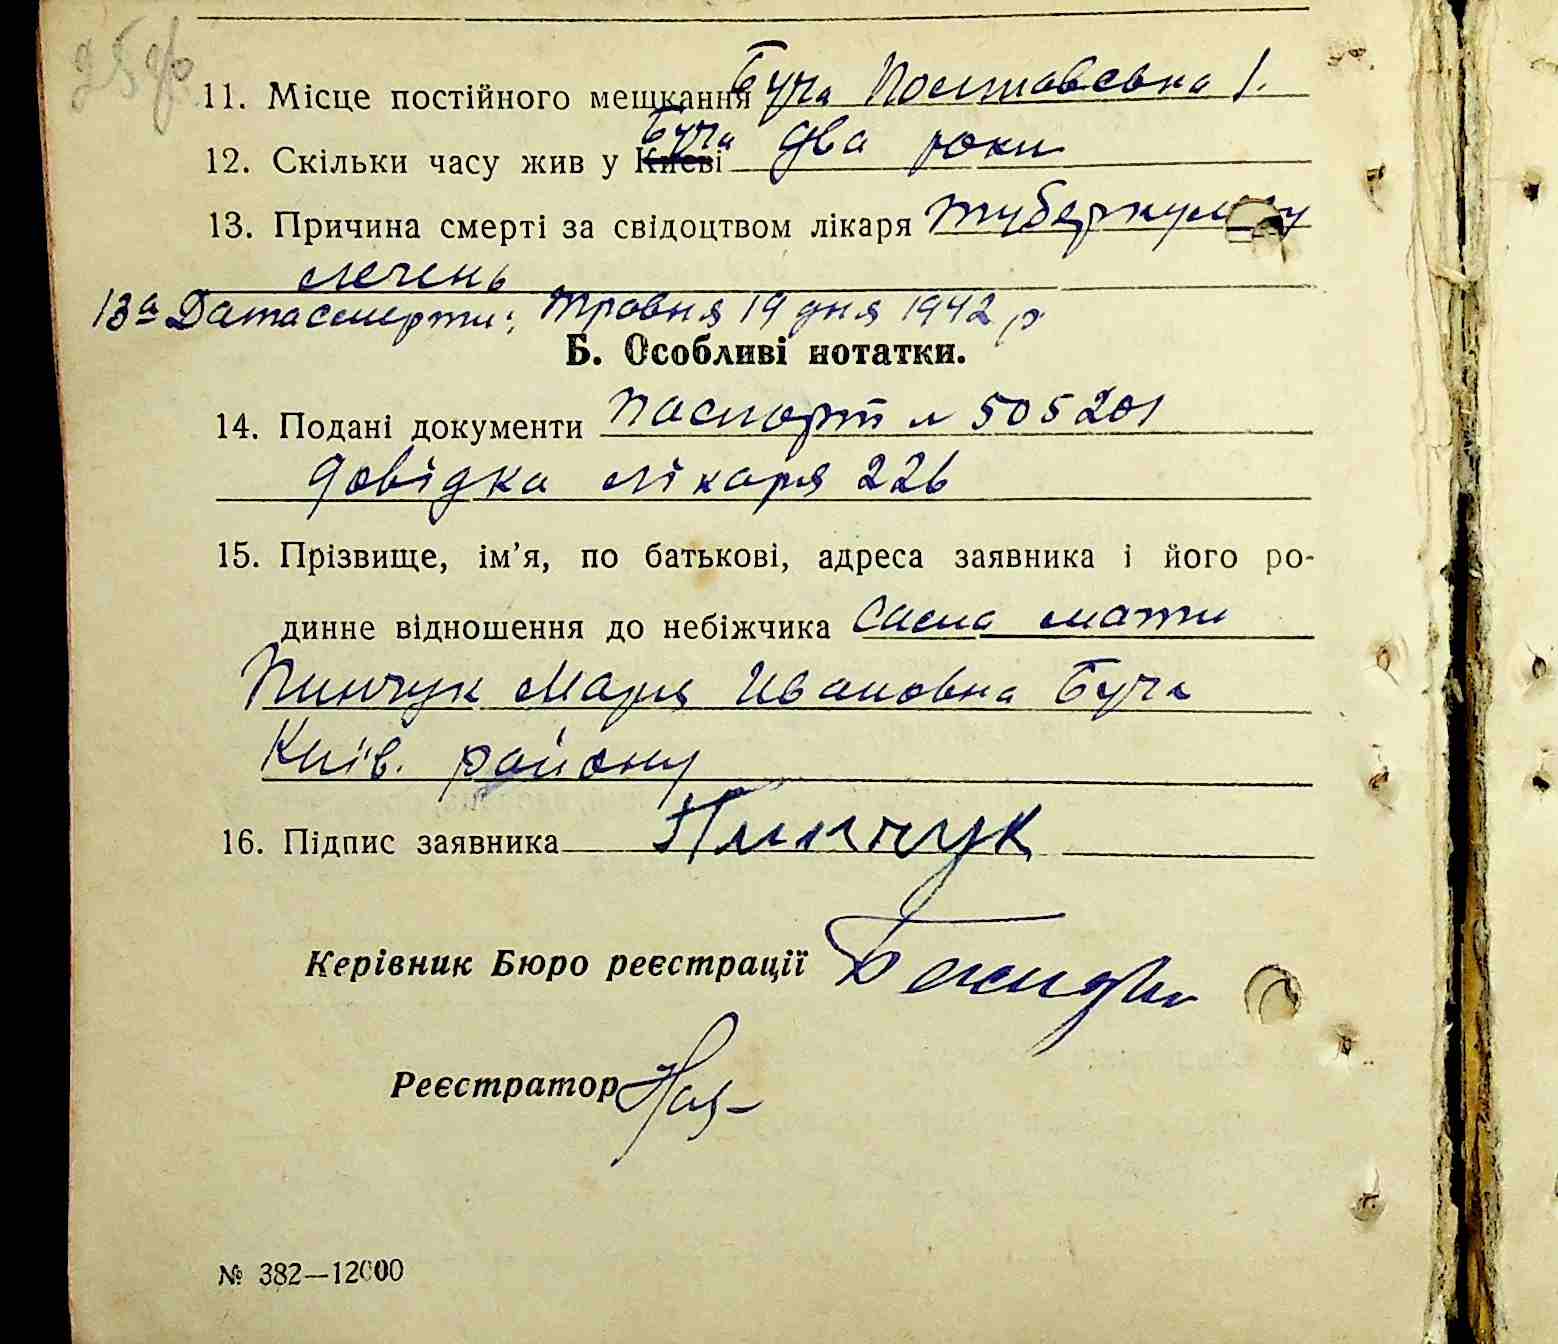 11. Місце постійного мешкання Буча Полтавська 1.
12. Скільки часу жив у Києві Буча два роки
13. Причина смерті за свідоцтвом лікаря туберкульоз
легень
13а Дата смерти: травня 19 дня 1942 р
Б. Особливі нотатки.
14. Подані документи паспорт № 505201
довідка лікаря 226
15. Прізвище, ім’я, по батькові, адреса заявника і його ро-
динне відношення до небіжчика мати
Пинчук Мария Ивановна Буча
Київ. району
16. Підпис заявника Пинчук
Керівник Бюро реєстрації
Реєстратор
№ 382—12000